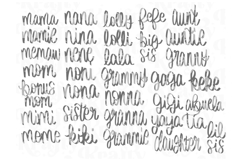 mama nana lolly fefe aunt
mamie nina lolli big auntie
memaw nene lala sis granny
mom noni grammy gaga bebe
bonus mom nona nonna gigi abuela
mimi sister gramma yaya tia
nome kiki grammie lil daughter sis